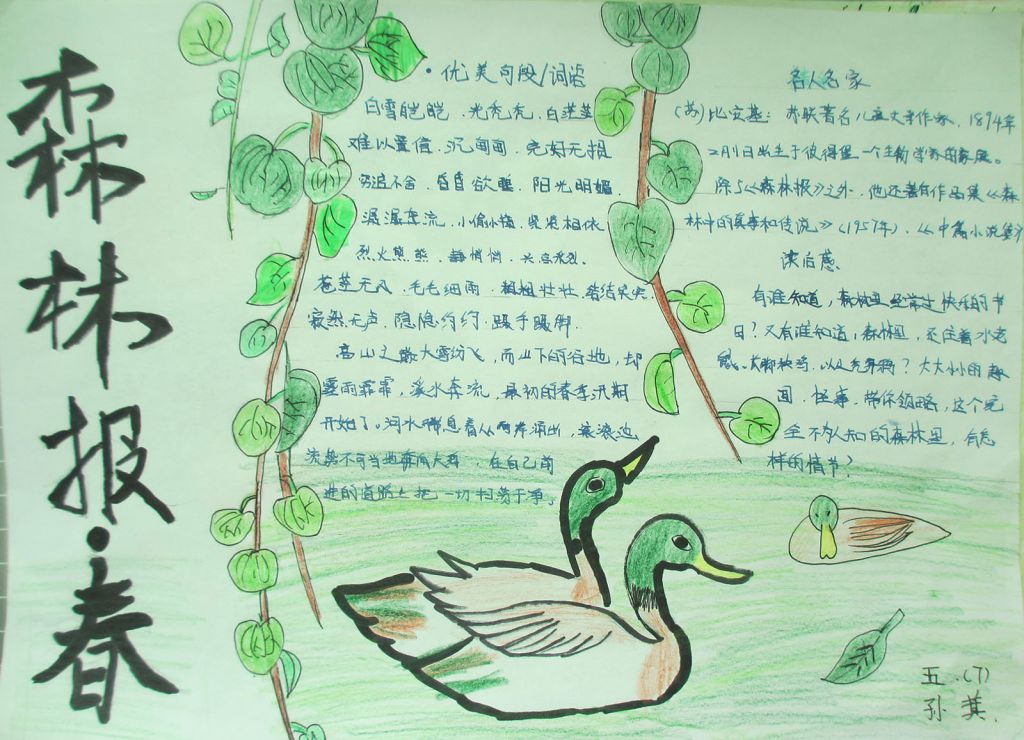 森林报·春
·优美句段/词语
白雪皑皑．光秃秃．白茫茫
难以置信．沉甸甸．完好无损
穷追不舍．昏昏欲睡．阳光明媚．
小偷小摸．紧紧相依
烈火熊熊．静悄悄．兴高采烈．
苍茫无风．毛毛细雨．粗粗壮壮．结结实实．
寂然无声．隐隐约约．蹑手蹑脚．
高山之巅大雪纷飞，而山下的谷地，却
霏雨霏霏，溪水奔流，最初的春季汛期
开始了。河水喘息着从两岸涌出，滚滚
流势不可当地奔向大海，在自己前
进的道路上把一切扫荡干净。
名人名家
(苏)比安基：苏联著名儿童文学作家，1894年
2月11日出生于彼得堡一个生物学家的家庭。
除了《森林报》之外，他还著有作品集《森
林中的真事和传说》(1957年)，《中篇小说集》
读后感
有谁知道，森林里经常过快乐的节
日？又有谁知道，森林里，还住着水老
大大小小的趣
闻、怪事，带你领略，这个完
全不为人知的森林里，有怎
样的情节？
五.(7)
孙萁.